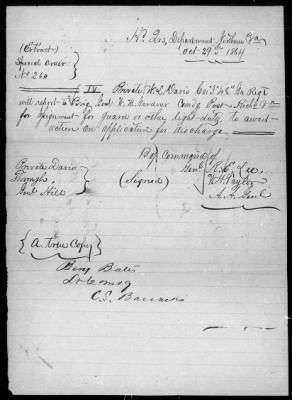 Hd Qrs, Department Northern Va
Oct 29th 1864
(Extract)
Special Order
No 264
IV, Private W S Davis Co "I" 48th Ga Regt
will report to Brig Genl W. M. Gardner Comdg Post Richd Va
for assignment for guard or other light duty, to await
action on application for discharge
By command of
Genl R. E. Lee
(Signed) W. H. Taylor
A. A. Genl
Private Davis
Through
Genl Hill
{A true Copy}
Benj Bates
Lt Comdg
C.S. Barracks